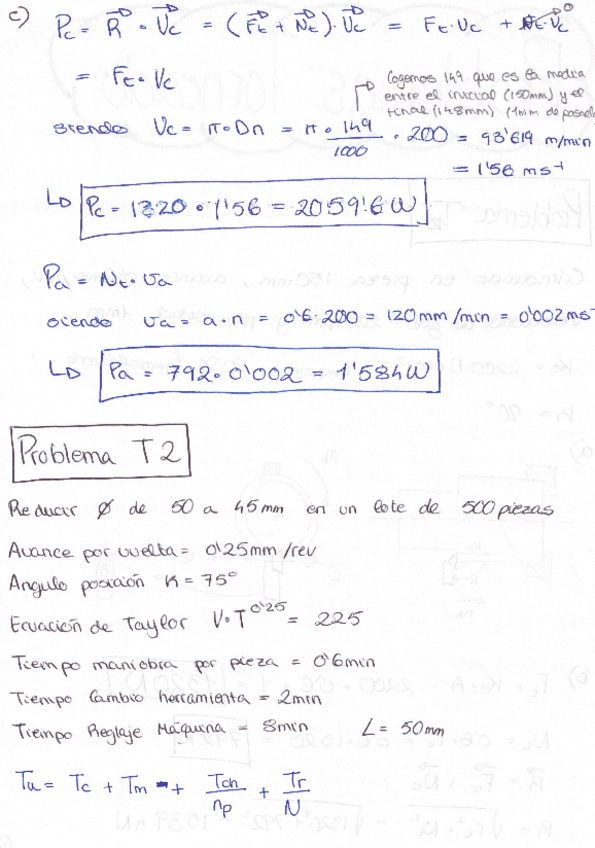 c) Pc = R⃗ · Vc⃗ = (Ft⃗ + Nt⃗) · Vc⃗ = Ft · Vc + Nt · Vc 0
= Ft · Vc
Cogemos 149 que es la media
entre el inicial (150mm) y el
final (148mm) (1mm de pasada)
siendo Vc = π · Dn = π · 149/1000 · 200 = 93'619 m/min
= 1'56 ms⁻¹
Pc = 1320 · 1'56 = 2059'6 W
Pa = Nt · va
siendo va = a · n = 0'6 · 200 = 120 mm/min = 0'002 ms⁻¹
Pa = 792 · 0'002 = 1'584 W
Problema T2
Reducir Ø de 50 a 45mm en un lote de 500 piezas
Avance por vuelta = 0'25mm/rev
Angulo posición K = 75°
Ecuación de Taylor V · T^0'25 = 225
Tiempo maniobra por pieza = 0'6min
Tiempo Cambio herramienta = 2min
Tiempo Reglaje Máquina = 8min L = 50mm
Tu = Tc + Tm + Tch/np + Tr/N